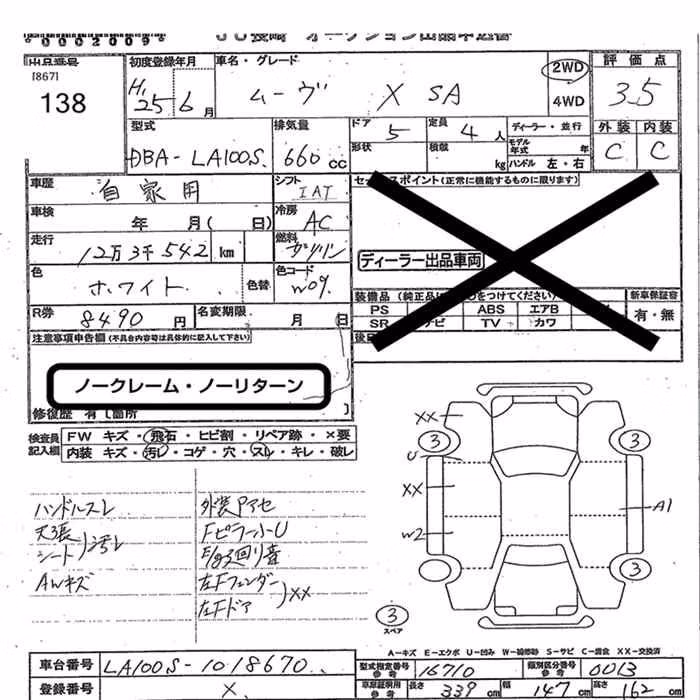 *0002009* JU長崎 オークション出品申込書
出品番号 初度登録年月 車名・グレード 評価点
[867]
138
H. 25 6月 ムーヴ X SA 2WD 4WD 3.5
外装 内装
C C
型式 排気量 ドア 定員 ディーラー・並行
DBA-LA100S. 660 cc 5 4人
形状 積載 kg モデル年式 年 ハンドル 左・右
車歴 自家用 シフト IAT
セールスポイント(正常に機能するものに限ります)
車検 年 月( 日) 冷房 AC
走行 12万3千542 km 燃料 ガソリン
ディーラー出品車両
色 ホワイト 色替 色コード W09.
装備品(純正品は をつけてください) 新車保証書
PS ABS エアB 有・無
SR ナビ TV カワ
R券 8490円 名変期限 月 日
後日
注意事項申告欄(不具合内容等は具体的に記入して下さい)
ノークレーム・ノーリターン
修復歴 有[箇所 ]
検査員記入欄 FW キズ・飛石・ヒビ割・リペア跡・×要
内装 キズ・汚レ・コゲ・穴・スレ・キレ・破レ
ハンドルスレ
天張
シート)汚レ
AWキズ
外装Pアセ
FピラーU
回り音
左Fフェンダー
左Fドア)XX
XX
3 3
U
XX
A1
W2
3
3
スペア
A-キズ E-エクボ U-凹み W-補修跡 S-サビ C-腐食 XX-交換済
車台番号 LA100S-1018670.
型式指定番号 参考 16710 類別区分番号 参考 0013
登録番号 X
車庫証明用 参考 長さ 339 cm 幅 147 cm 高さ 162 cm